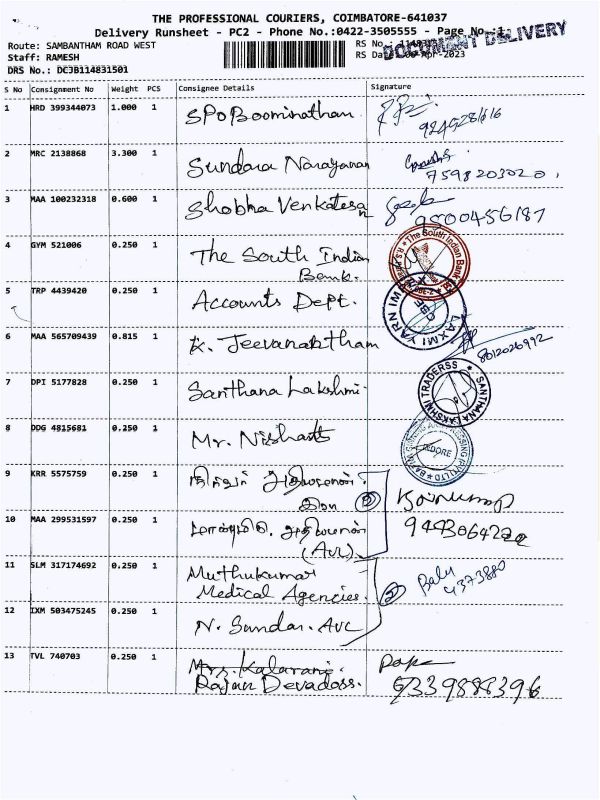 THE PROFESSIONAL COURIERS, COIMBATORE-641037
Delivery Runsheet - PC2 - Phone No.:0422-3505555 - Page No.:1
Route: SAMBANTHAM ROAD WEST
RS No.
DOCUMENT DELIVERY
Staff: RAMESH
RS Date
Apr-2023
DRS No.: DCJB114831501
S No Consignment No Weight PCS Consignee Details Signature
1 HRD 399344073 1.000 1 SPO Boominathan
2 MRC 2138868 3.300 1 Sundara Narayanan
7598203020
3 MAA 100232318 0.600 1 Shobha Venkatesan
9500456187
4 GYM 521006 0.250 1 The South Indian
Bank.
The South Indian Bank
5 TRP 4439420 0.250 1 Accounts Dept.
LAXMI YARN
6 MAA 565709439 0.815 1 K. Jeevanantham
8012026992
7 DPI 5177828 0.250 1 Santhana Lakshmi
SANTHANA LAKSHMI TRADERSS
8 DDG 4815681 0.250 1 Mr. Nishant
9 KRR 5575759 0.250 1
2
10 MAA 299531597 0.250 1
(AVL)
11 SLM 317174692 0.250 1 Muthukumar
Medical Agencies.
2
Balu
4373880
12 IXM 503475245 0.250 1 N. Sundar. AVL
13 TVL 740703 0.250 1 Mrs. Kalarani.
Rajan Devadoss.